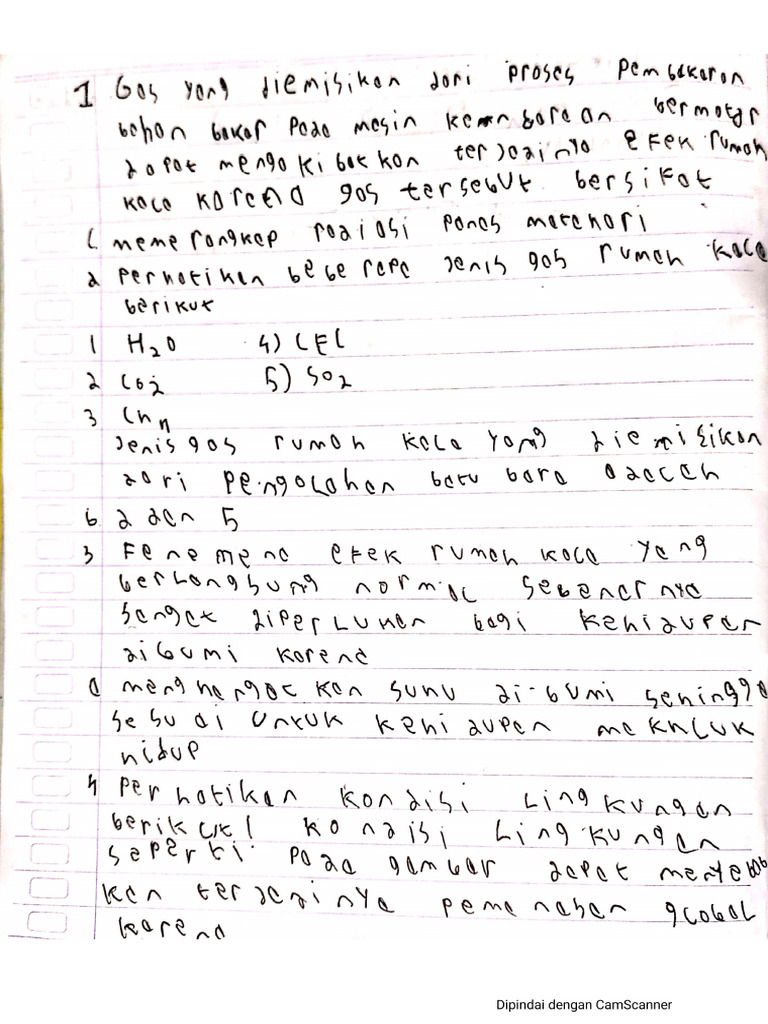 1 Gas yang diemisikan dari proses pembakaran
bahan bakar pada mesin kendaraan bermotor
dapat mengakibatkan terjadinya efek rumah
kaca karena gas tersebut bersifat
c. memerangkap radiasi panas matahari
2 perhatikan beberapa jenis gas rumah kaca
berikut
1 H2O 4) CFC
2 CO2 5) SO2
3 CH4
Jenis gas rumah kaca yang diemisikan
dari pengolahan batu bara adalah
b 2 dan 5
3 Fenomena efek rumah kaca yang
berlangsung normal sebenarnya
sangat diperlukan bagi kehidupan
di bumi karena
a menghangatkan suhu di-bumi sehingga
sesuai untuk kehidupan makhluk
hidup
4 Perhatikan kondisi lingkungan
berikut! kondisi lingkungan
seperti pada gambar dapat menyebab
kan terjadinya pemanahan global
karena
Dipindai dengan CamScanner